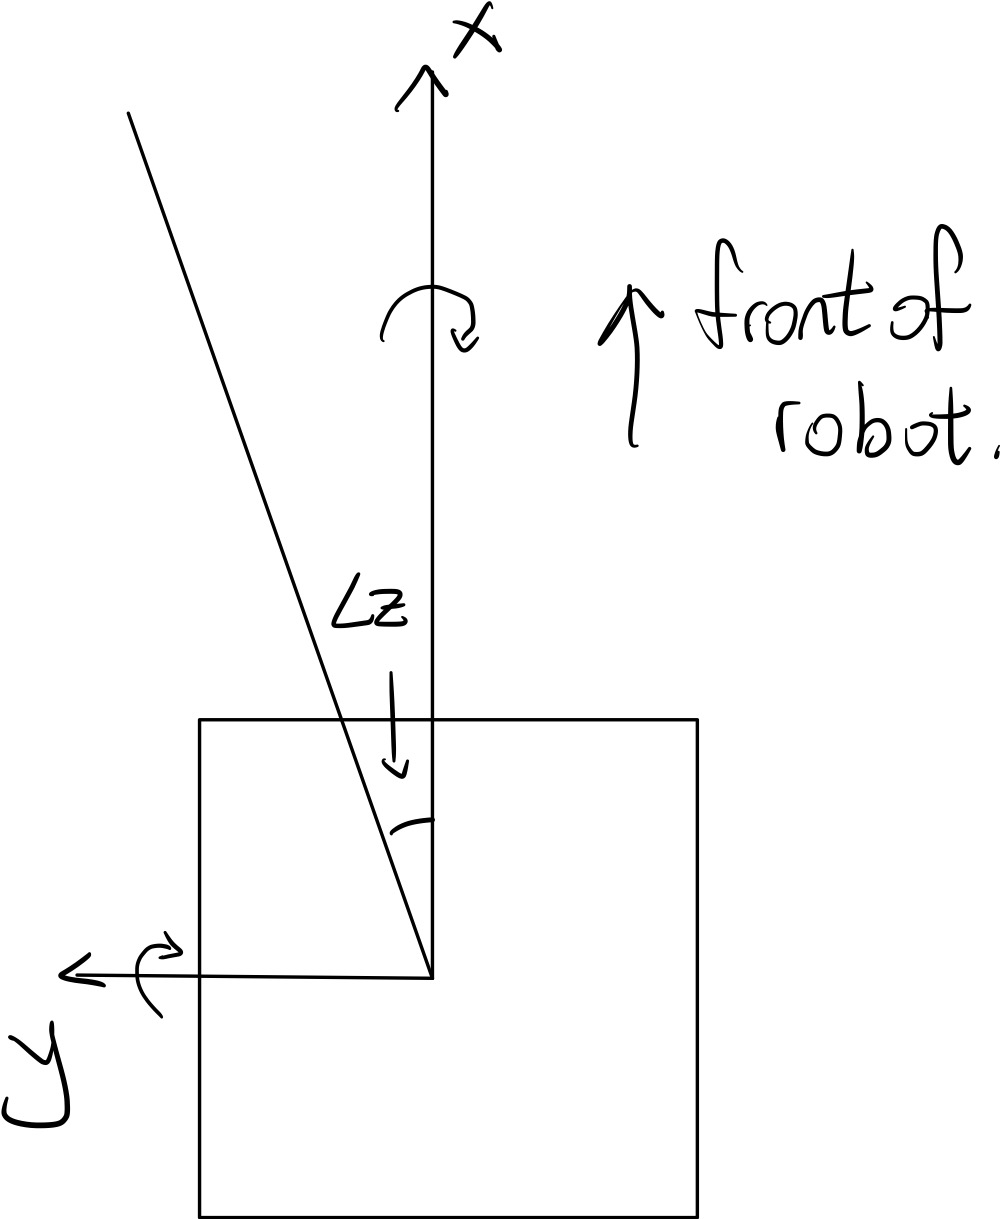 x
front of
robot.
∠z
y